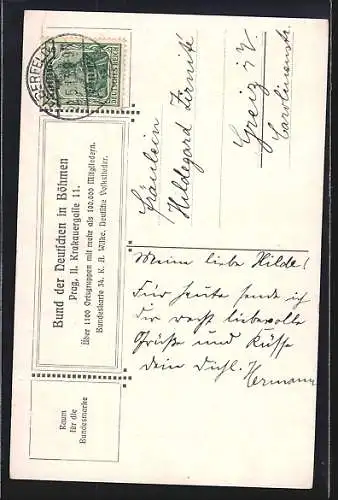 GERFELD
DEUTSCHES REICH
Bund der Deutschen in Böhmen
Prag, II. Krakauergasse 11.
Über 1100 Ortsgruppen mit mehr als 100.000 Mitgliedern.
Bundeskarte 34. K. A. Wilke. Deutsche Volkslieder.
Raum
für die
Bundesmarke
Fräulein
Hildegard
Greiz i/V
Carolinenstr.
Meine liebe Hilde!
Für heute sende ich
dir recht liebevolle
Grüße und Küsse
Dein Dichl.
Hermann